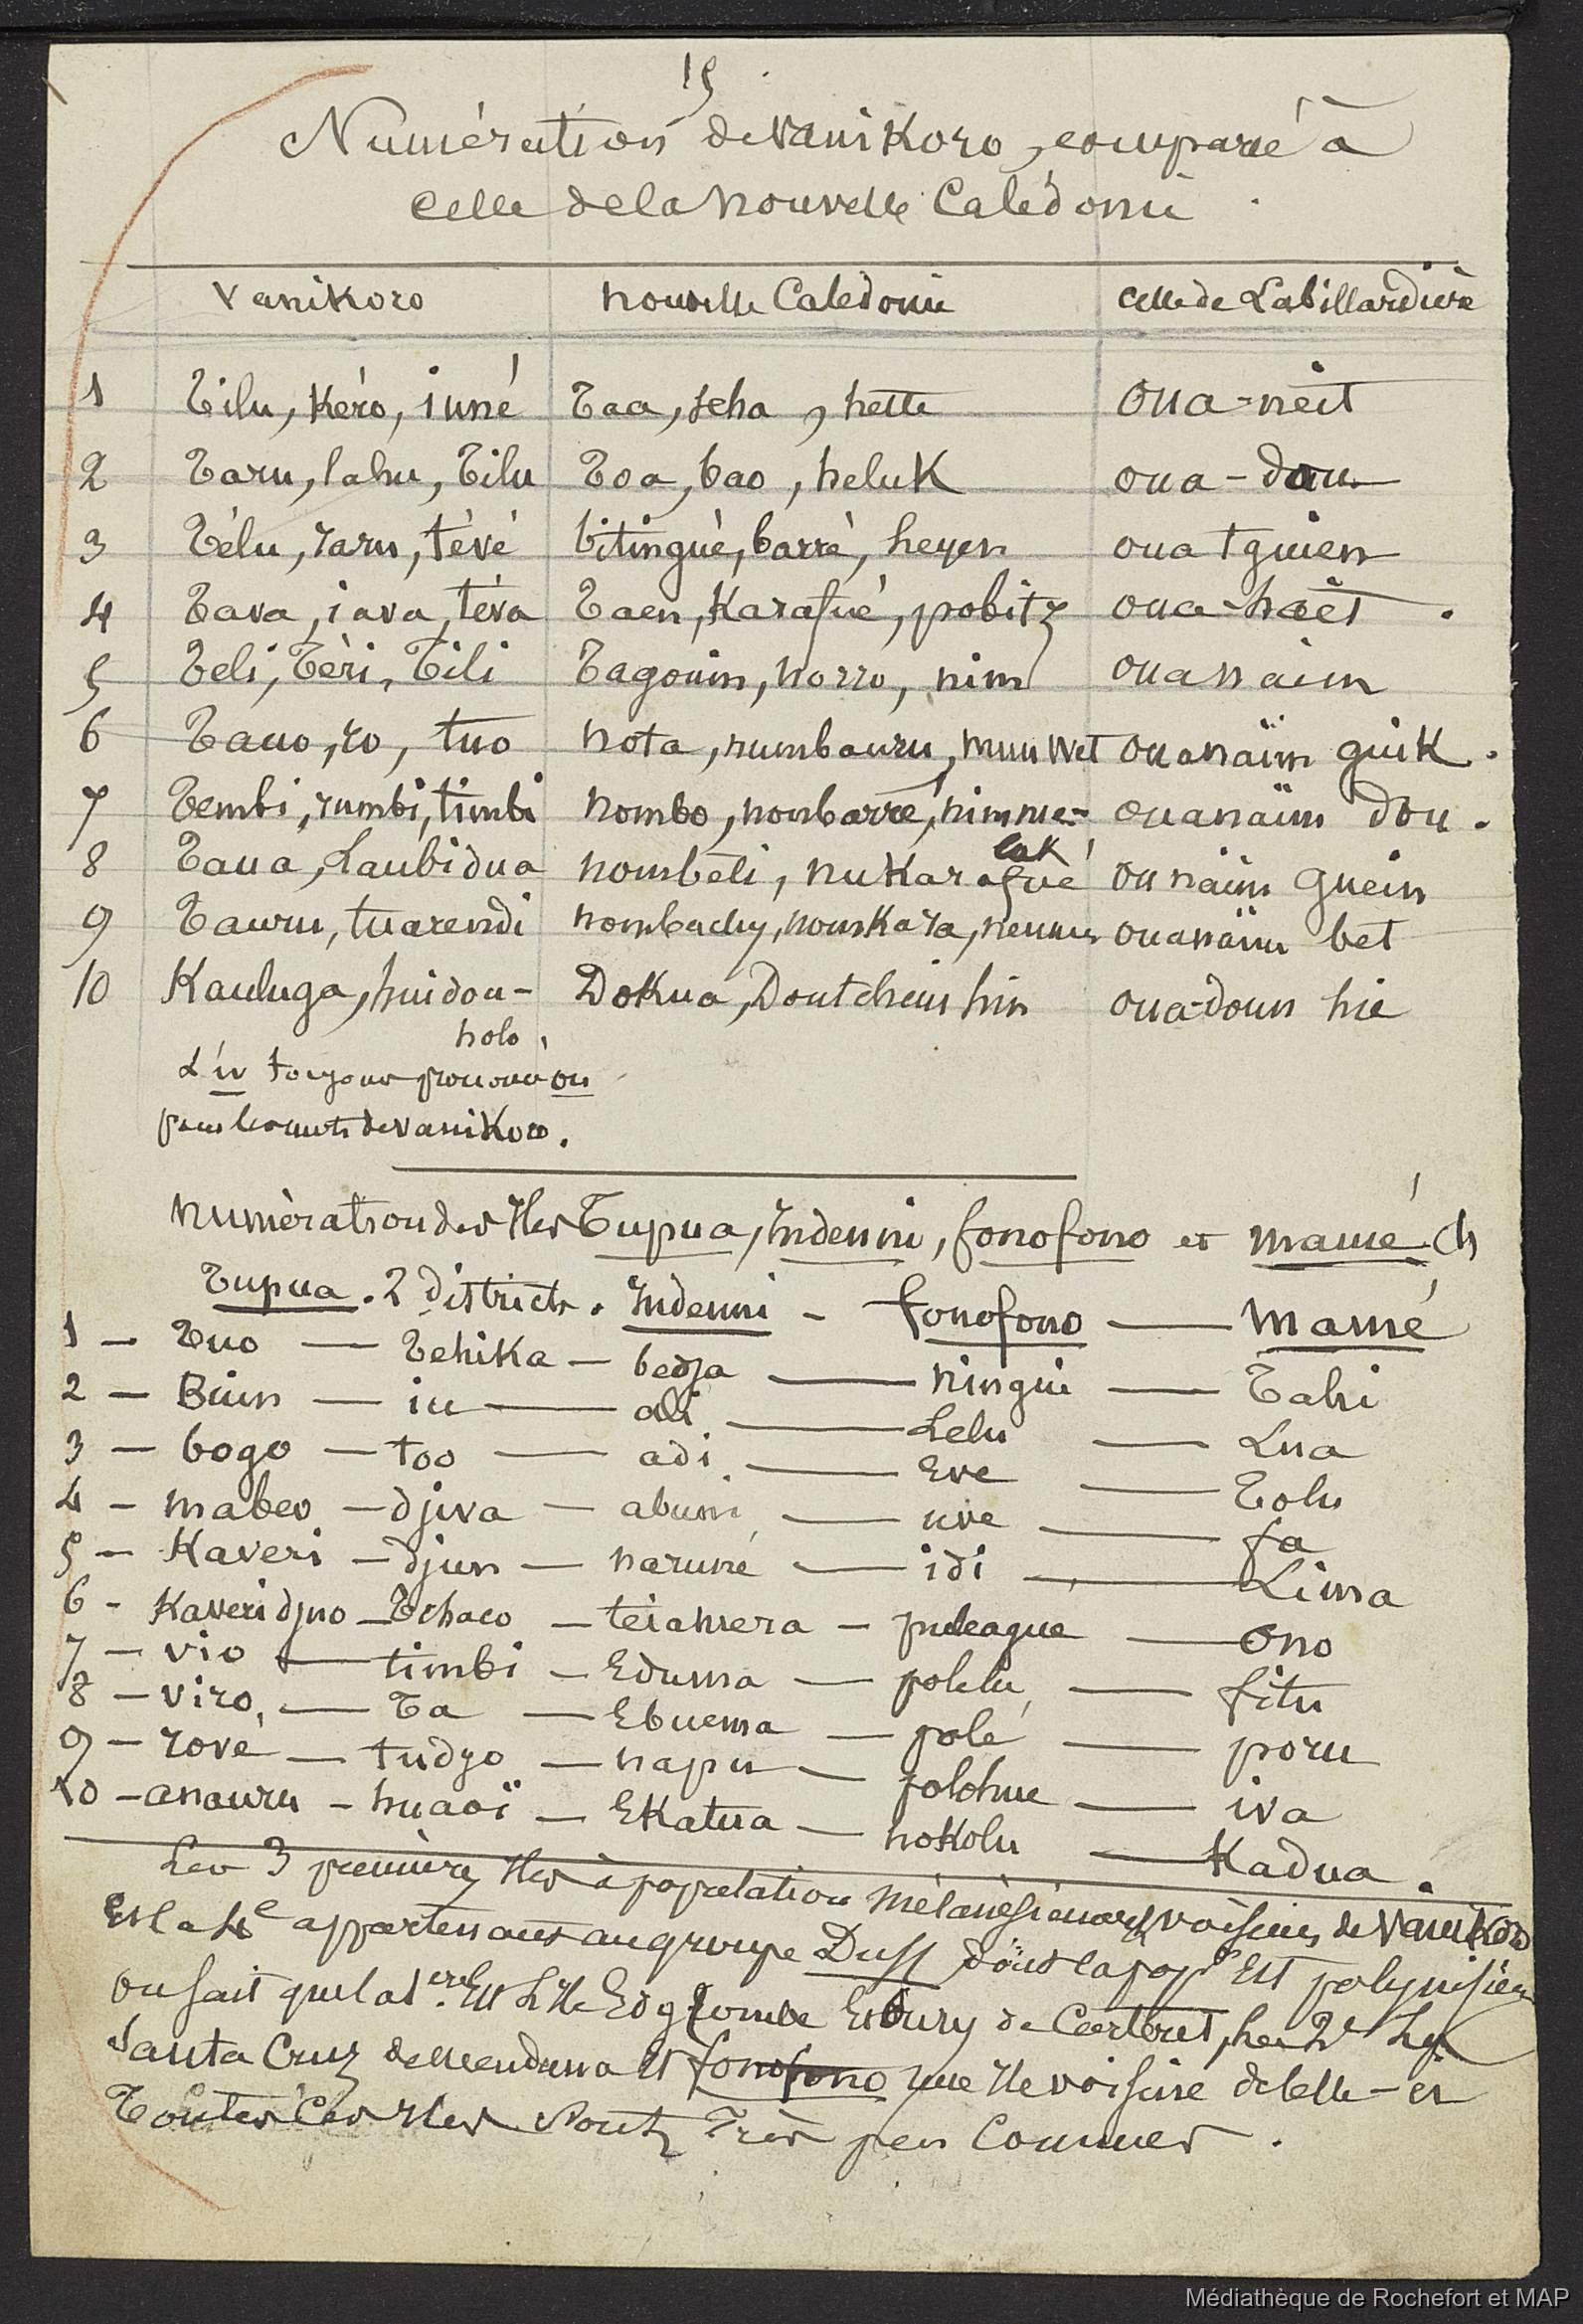 15
Numération de Vanikoro, comparé à
celle de la nouvelle Calédonie
Vanikoro nouvelle Calédonie celle de Labillardière
1 Tilu, Kéro, iuné Taa, seha, hette oua-neit
2 Taru, lahu, Tilu Toa, bao, heluk oua-dou
3 Télu, raru, tévé titingué, barré, heyen oua tguien
4 Tava, iava, téva Taen, Karafué, pobitz oua-haët
5 Teli, Téri, Tili Tagouin, norro, nim oua naim
6 Tauo, ro, tuo nota, rumbauru, muuwet ouanaïm guik.
7 Tembi, rumbi, timbi nombo, nonbarré, nimue- ouanaïm dou.
luk
8 Taua, Laubidua nombéli, nukarafué ou naïm guein
9 Tauru, tuarendi nombuchy, nonkara, ouanaïm bet
10 Kauluga, huidou- Dokua, Doutchein hin oua-doun hie
holo.
L'u toujours prononcé ou
pour les mots de Vanikoro.
Numération des Iles Tupua, Indenni, fonofono et mamé
Tupua. 2 districts. Indenni - fonofono — Mamé
1 — Tuo — Tehika — bedja — ningui — Tahi
2 — Biun — iu — ali — Lelu — Lua
3 — bogo — too — adi — Eve — Tolu
4 — mabeo — djiva — abuni — uve — fa
5 — Kaveri — djun — naruné — idi — Lima
6 - Kaveridjuo — Tchaco — teiamera — puleagué — ono
7 — vio — timbi — Eduma — polelu — fitu
8 — viro — Ta — Ebuema — polé — poru
9 — rové — tudzo — napu — polohue — iva
10 — anauru - huaoï — Ekatua — nokolu — Kadua.
Les 3 premières Iles à population mélanésienne, voisines de Vanikoro
Et la 4e appartenant au groupe Duff dont la pop. Est polynésienne
On sait que la 1ere Est L'Ile de Carteret, la 2e
Santa Cruz de Mendana et fonofono une Ile voisine de celle-ci
Toutes Ces Iles Sont Très peu Connues.
Médiathèque de Rochefort et MAP